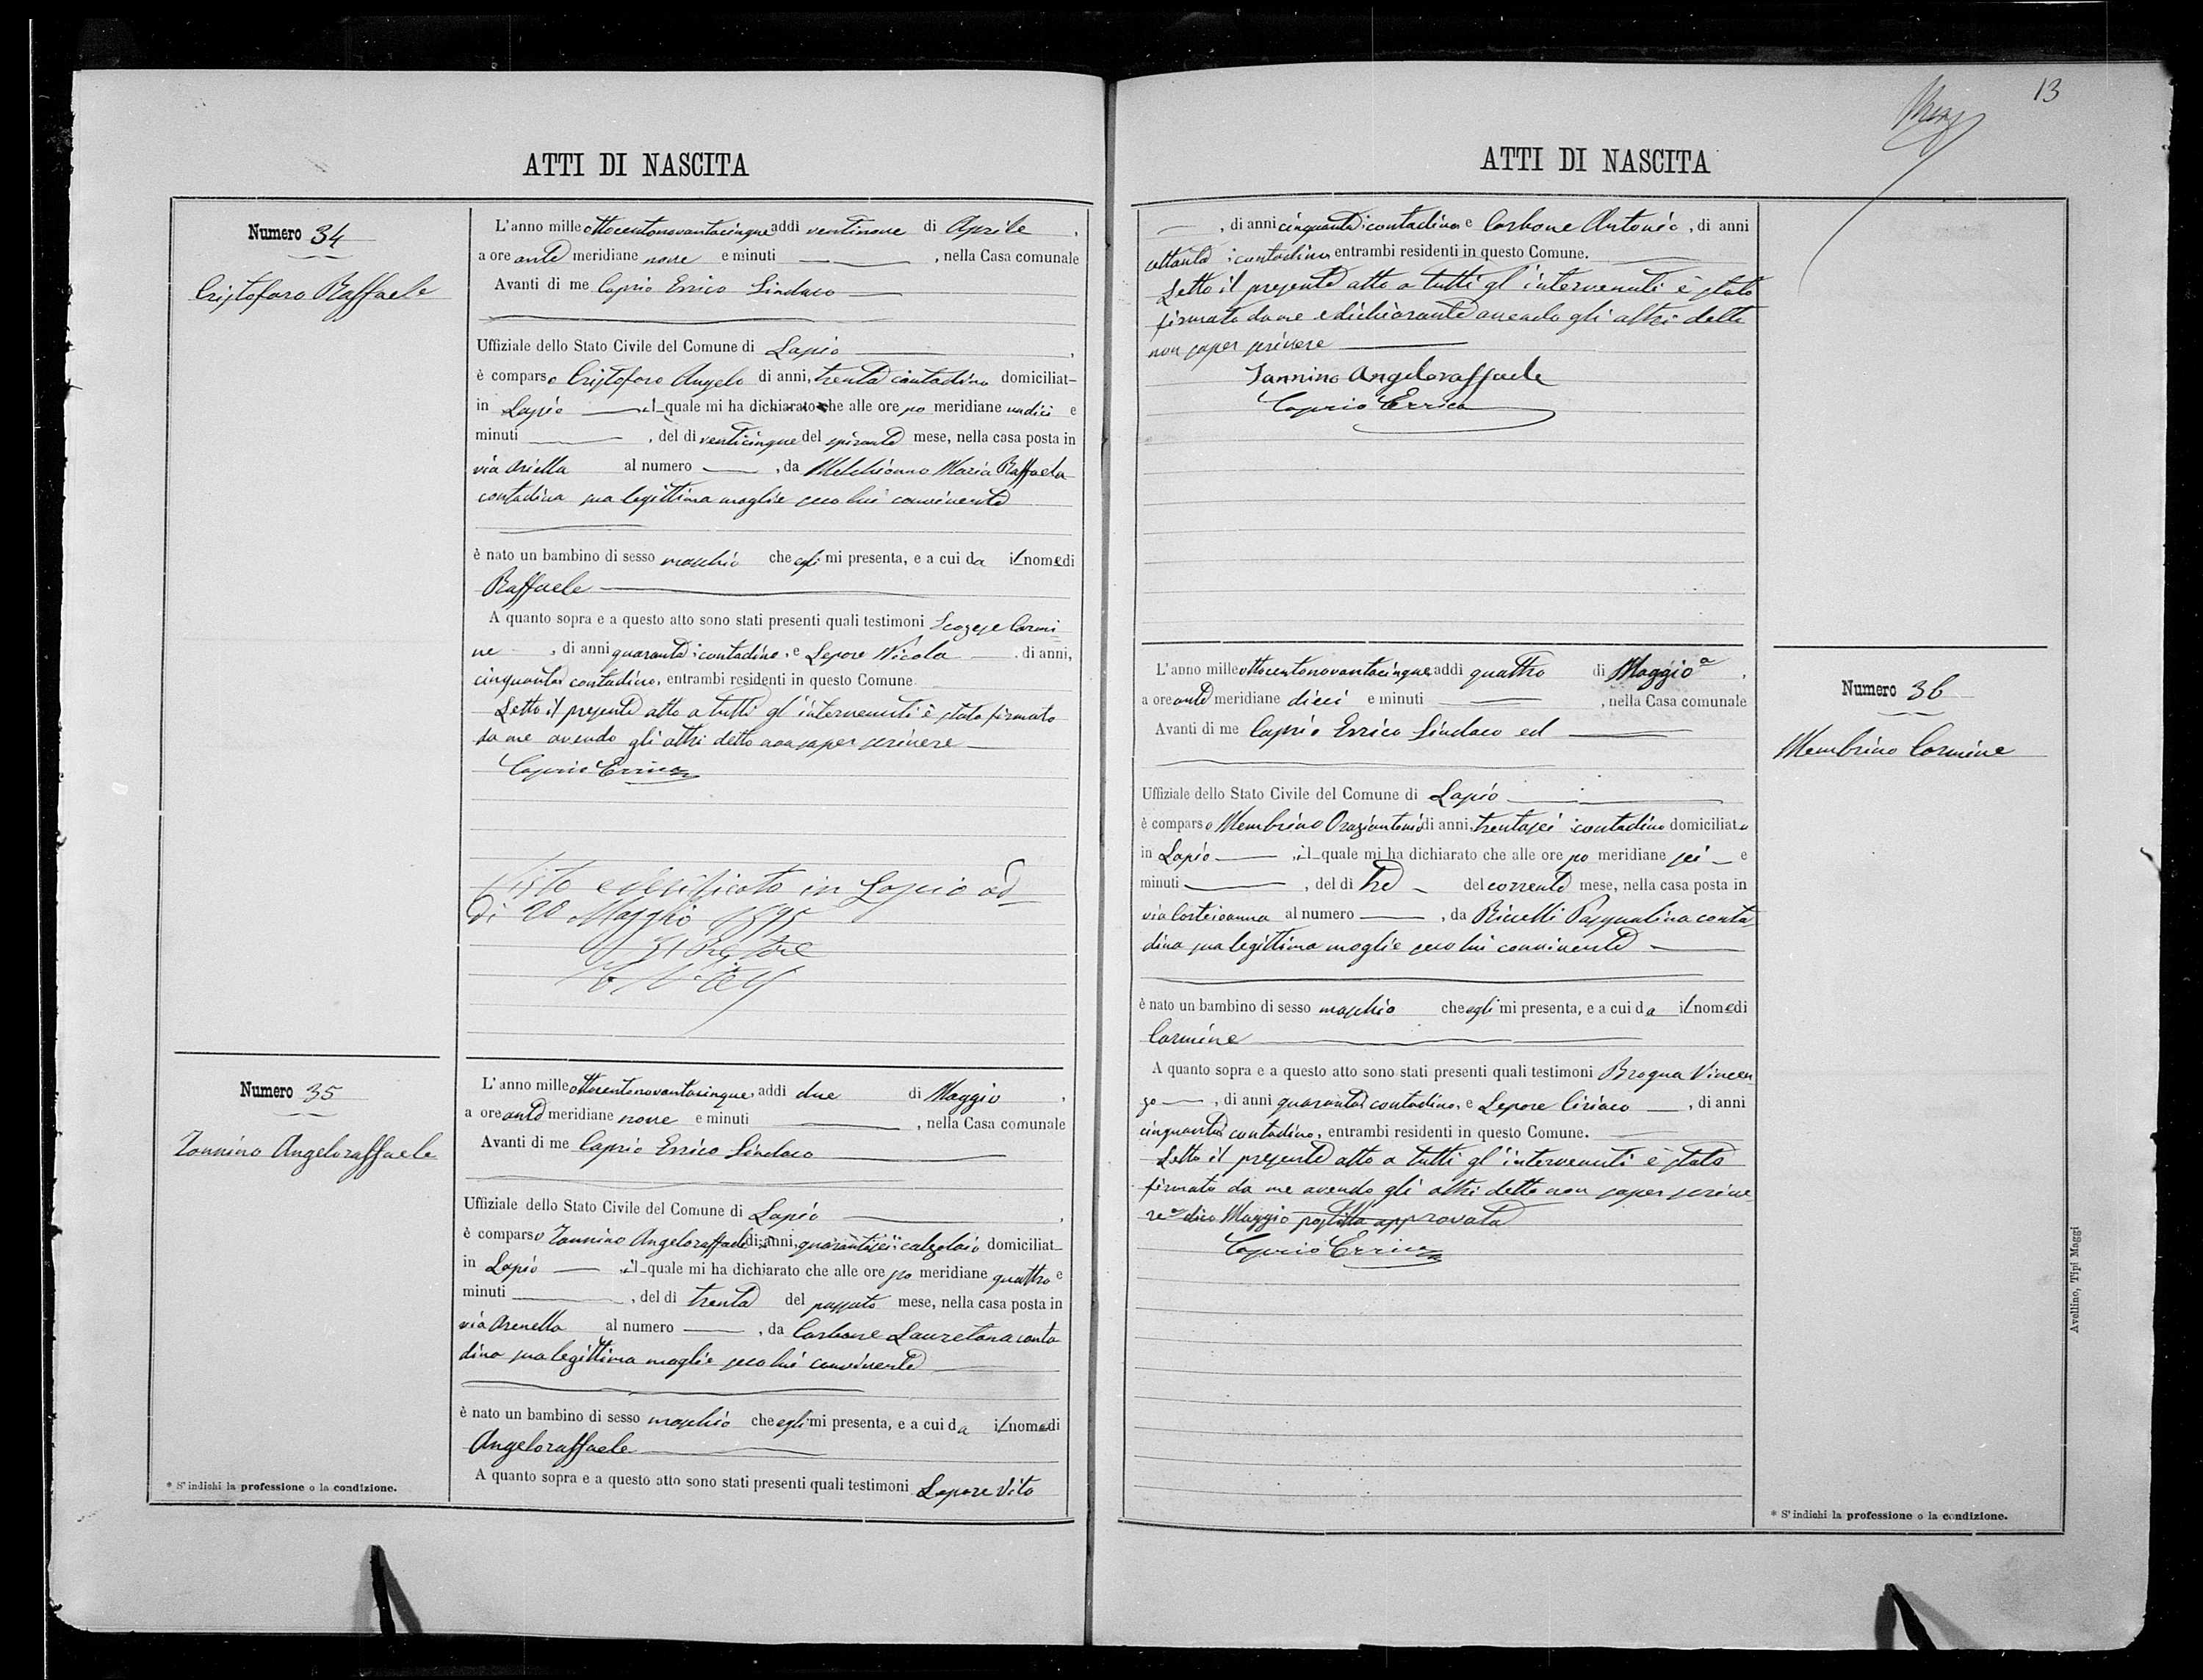 13
ATTI DI NASCITA
Numero 34
Cristofaro Raffaele
L'anno mille ottocentonovantacinque addì ventinove di Aprile,
a ore ante meridiane nove e minuti , nella Casa comunale
Avanti di me Caprio Errico Sindaco
Uffiziale dello Stato Civile del Comune di Lapio,
è comparso Cristofaro Angelo di anni, trenta contadino domiciliat
in Lapio il quale mi ha dichiarato che alle ore po meridiane undici e
minuti , del dì venticinque del spirante mese, nella casa posta in
via Ariella al numero , da Melchionno Maria Raffaela
contadina sua legittima moglie seco lui convivente
è nato un bambino di sesso maschio che egli mi presenta, e a cui da il nome di
Raffaele
A quanto sopra e a questo atto sono stati presenti quali testimoni Scozese Carmi
ne , di anni quaranta contadino, e Lepore Nicola , di anni,
cinquanta contadino, entrambi residenti in questo Comune.
Letto il presente atto a tutti gl'intervenuti è stato firmato
da me avendo gli altri detto non saper scrivere
Caprio Errico
Visto e verificato in Lapio ad
dì 20 Maggio 1895
Il Pretore
Numero 35
Iannino Angeloraffaele
L'anno mille ottocentonovantacinque, addì due di Maggio,
a ore ante meridiane nove e minuti , nella Casa comunale
Avanti di me Caprio Errico Sindaco
Uffiziale dello Stato Civile del Comune di Lapio,
è comparso Iannino Angeloraffaele di anni, quarantasei calzolaio domiciliat
in Lapio il quale mi ha dichiarato che alle ore po meridiane quattro e
minuti , del dì trenta del passato mese, nella casa posta in
via Arenella al numero , da Carbone Lauretana conta
dina sua legittima moglie seco lui convivente
è nato un bambino di sesso maschio che egli mi presenta, e a cui da il nome di
Angeloraffaele
A quanto sopra e a questo atto sono stati presenti quali testimoni Lepore Vito
* S'indichi la professione o la condizione.
ATTI DI NASCITA
, di anni cinquanta contadino e Carbone Antonio, di anni
ottanta contadino entrambi residenti in questo Comune.
Letto il presente atto a tutti gl'intervenuti è stato
firmato da me e dichiarante avendo gli altri detto
non saper scrivere
Iannino Angeloraffaele
Caprio Errico
Numero 36
Membrino Carmine
L'anno mille ottocentonovantacinque addì quattro di Maggio a,
a ore ante meridiane dieci e minuti , nella Casa comunale
Avanti di me Caprio Errico Sindaco ed
Uffiziale dello Stato Civile del Comune di Lapio
è comparso Membrino Oraziantonio di anni, trentasei contadino domiciliato
in Lapio il quale mi ha dichiarato che alle ore po meridiane sei e
minuti , del dì tre del corrente mese, nella casa posta in
via al numero , da Ricelli Pasqualina conta
dina sua legittima moglie seco lui convivente
è nato un bambino di sesso maschio che egli mi presenta, e a cui da il nome di
Carmine
A quanto sopra e a questo atto sono stati presenti quali testimoni Brogna Vincen
zo , di anni quaranta contadino, e Lepore Ciriaco , di anni
cinquanta contadino, entrambi residenti in questo Comune.
Letto il presente atto a tutti gl'intervenuti è stato
firmato da me avendo gli altri detto non saper scrive
re a dico Maggio postilla approvata
Caprio Errico
* S'indichi la professione o la condizione.
Avellino, Tipi Maggi